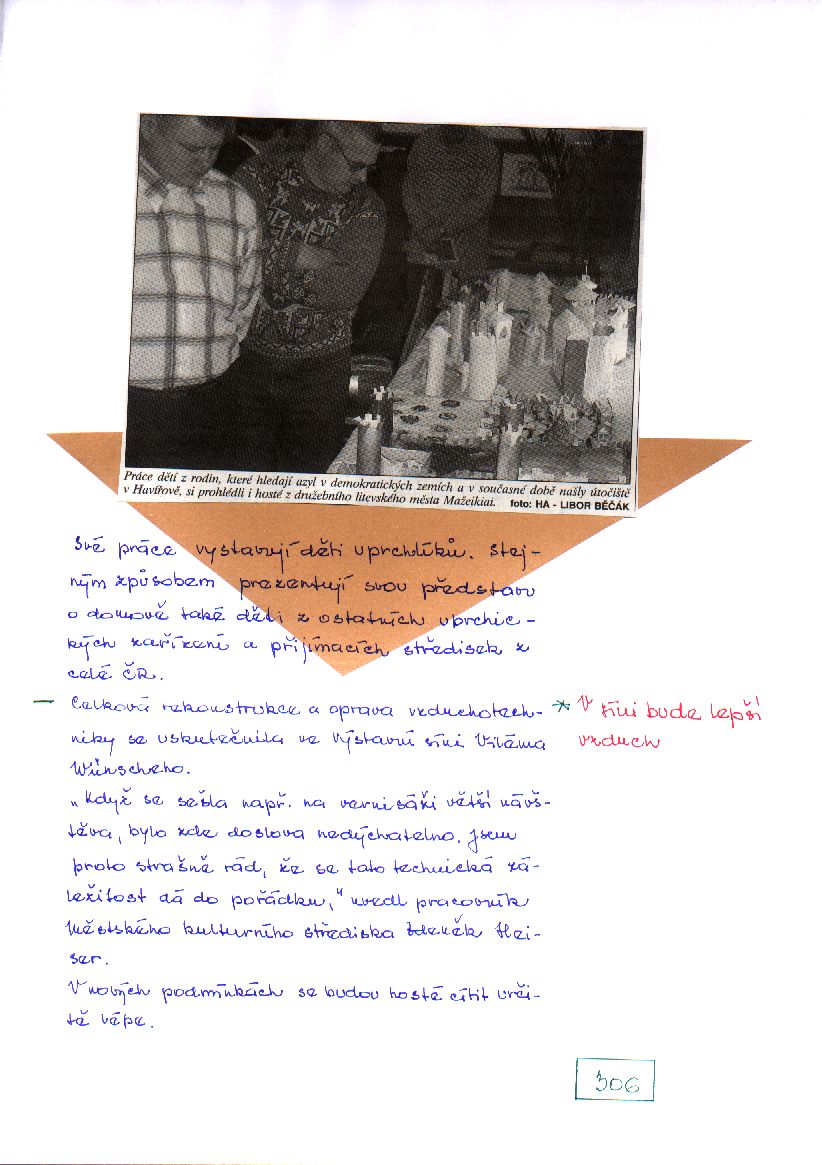 Práce dětí z rodin, které hledají azyl v demokratických zemích a v současné době našly útočiště
v Havířově, si prohlédli i hosté z družebního litevského města Mažeikiai. foto: HA - LIBOR BĚČÁK
Své práce vystavují děti uprchlíků. Stej-
ným způsobem prezentují svou představu
o domově také děti z ostatních uprchlic-
kých zařízení a přijímacích středisek z
celé ČR.
— Celková rekonstrukce a oprava vzduchotech-
niky se uskutečnila ve výstavní síni Viléma
Wünscheho.
* V síni bude lepší
vzduch
„Když se sešla např. na vernisáži větší návš-
těva, bylo zde doslova nedýchatelno. Jsem
proto strašně rád, že se tato technická zá-
ležitost dá do pořádku," uvedl pracovník
Městského kulturního střediska Zdeněk Hei-
ser.
V nových podmínkách se budou hosté cítit urči-
tě lépe.
306